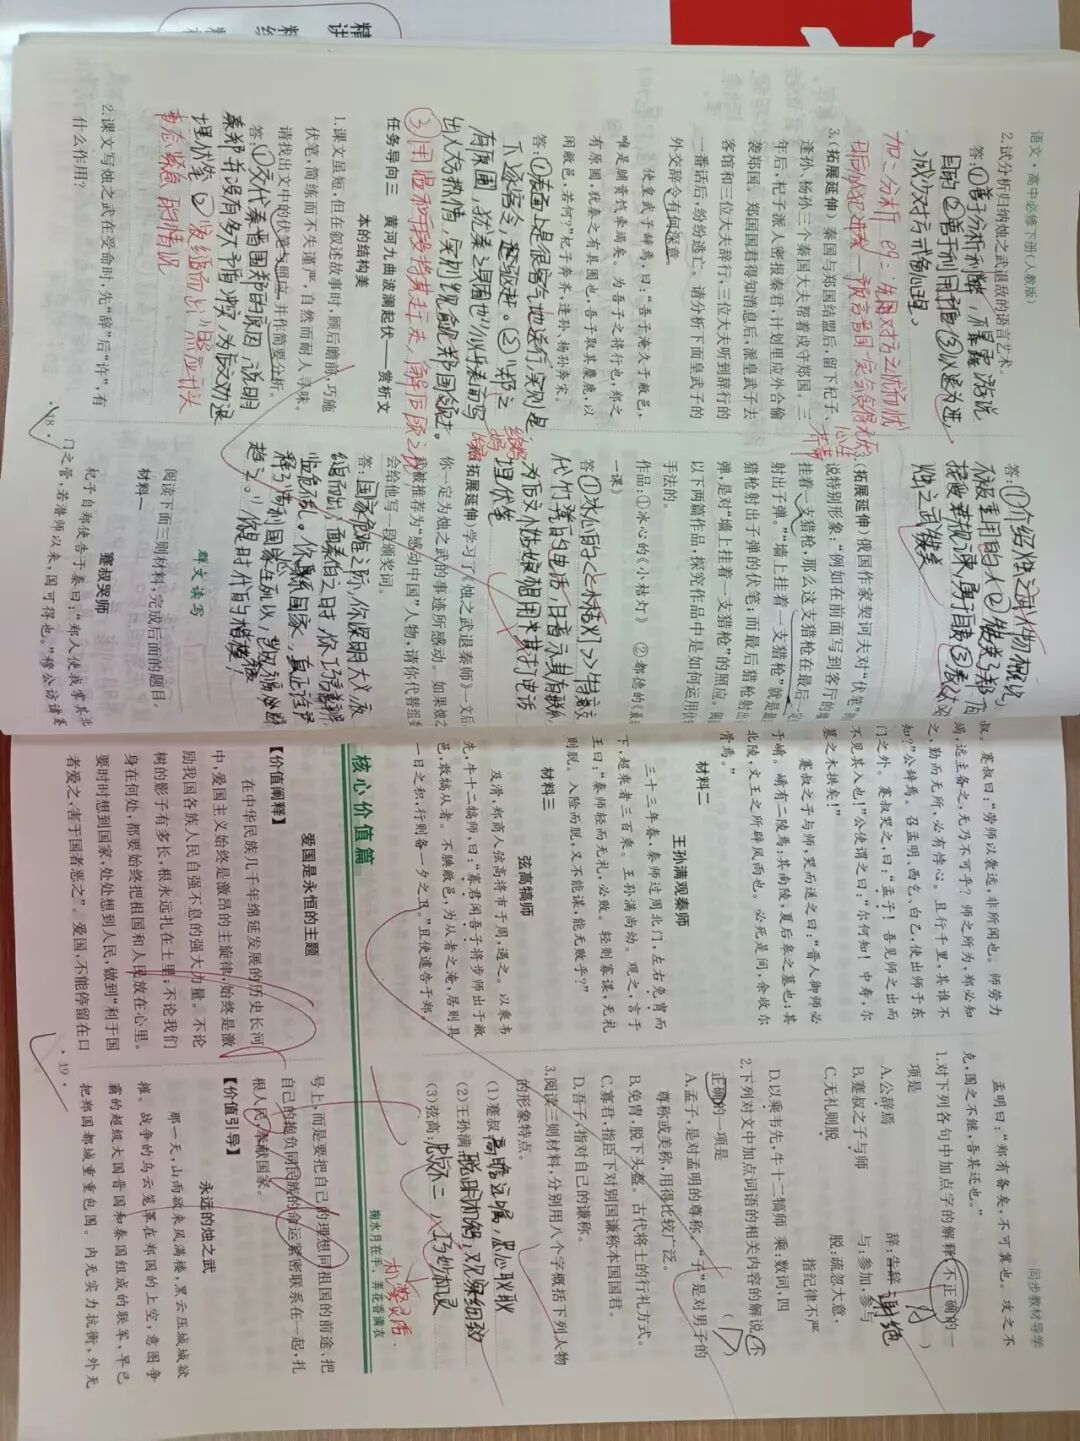 语文·高中必修下册(人教版)
2.试分析归纳烛之武退敌的语言艺术。
答:①善于分析利弊,不显露游说
目的 ②善于利用 ③以退为进
3.(拓展延伸)秦国与郑国结盟后,留下杞子、
逢孙、杨孙三个秦国大夫帮着戍守郑国。三
年后,杞子派人密报秦君,计划里应外合偷
袭郑国。郑国国君得知消息后,派皇武子去
客馆和三位大夫辞行,三位大夫听到辞行的
一番话后,纷纷逃亡。请分析下面皇武子的
外交辞令有何深意。
使皇武子辞焉,曰:“吾子淹久于敝邑,
唯是脯资饩牵竭矣。为吾子之将行也,郑之
有原圃,犹秦之有具囿也,吾子取其麋鹿,以
闲敝邑,若何?”杞子奔齐,逢孙、杨孙奔宋。
答:①表面上是很客气地送行,实则是
下逐客令,是驱赶。②以“郑之
有原圃,犹秦之具囿也”
任务导向三 黄河九曲波澜起伏——赏析文
本的结构美
1.课文虽短,但在叙述故事时,顾后瞻前,巧施
伏笔,简练而不失谨严,自然而耐人寻味。
请找出文中的伏笔与照应,并作简要分析。
答:①交代秦晋围郑的原因,说明
秦郑并没有多大矛盾冲突,为后文劝退
埋伏笔 ②“夜缒而出”照应开头
事态紧急的情况
2.课文写烛之武在受命时,先“辞”后“许”,有
什么作用?
答:①介绍烛之武人物概况
3.(拓展延伸)俄国作家契诃夫对“伏笔”
说特别形象:“例如在前面写到客厅的墙
挂着一支猎枪,那么这支猎枪在最后一定
射出子弹。”“墙上挂着一支猎枪”就是
猎枪射出子弹的伏笔;而最后猎枪射出
弹,是对“墙上挂着一支猎枪”的照应。
以下两篇作品,探究作品中是如何运用伏
手法的。
作品:①冰心的《小桔灯》 ②都德的《最
一课》
埋伏笔
(拓展延伸)学习了《烛之武退秦师》一文后
你一定为烛之武的事迹所感动。如果烛之
武被推荐为“感动中国”人物,请你代替组委
会给他写一段颁奖词。
答:国家危难之际,你深明大义,夜
群文读写
阅读下面三则材料,完成后面的题目。
材料一
蹇叔哭师
杞子自郑使告于秦曰:“郑人使我掌其北
门之管,若潜师以来,国可得也。”穆公访诸蹇
·18·
同步教材导学
叔。蹇叔曰:“劳师以袭远,非所闻也。师劳力
竭,远主备之,无乃不可乎?师之所为,郑必知
之,勤而无所,必有悖心。且行千里,其谁不
知?”公辞焉。召孟明、西乞、白乙,使出师于东
门之外。蹇叔哭之,曰:“孟子!吾见师之出而
不见其入也!”公使谓之曰:“尔何知!中寿,尔
墓之木拱矣!”
蹇叔之子与师,哭而送之曰:“晋人御师必
于崤。崤有二陵焉:其南陵,夏后皋之墓也;其
北陵,文王之所辟风雨也。必死是间,余收尔
骨焉。”
材料二
王孙满观秦师
三十三年春,秦师过周北门,左右免胄而
下,超乘者三百乘。王孙满尚幼。观之,言于
王曰:“秦师轻而无礼,必败。轻则寡谋,无礼
则脱。入险而脱,又不能谋,能无败乎?”
材料三
弦高犒师
及滑,郑商人弦高将市于周,遇之。以乘韦
先,牛十二犒师,曰:“寡君闻吾子将步师出于敝
邑,敢犒从者。不腆敝邑,为从者之淹,居则具
一日之积,行则备一夕之卫。”且使遽告于郑。
孟明曰:“郑有备矣,不可冀也。攻之不
克,围之不继,吾其还也。”
1.对下列各句中加点字的解释,不正确的一
项是 ( )
A.公辞焉 辞:告辞 谢绝
B.蹇叔之子与师 与:参加,参与
C.无礼则脱 脱:疏忽大意,
指纪律不严
D.以乘韦先,牛十二犒师 乘:数词,四
2.下列对文中加点词语的相关内容的解说,不
正确的一项是 ( )
A.孟子,是对孟明的尊称。“子”是对男子的
尊称或美称,用得比较广泛。
B.免胄,脱下头盔。古代将士的行礼方式。
C.寡君,指臣下对别国谦称本国国君。
D.吾子,指对自己的谦称。
3.阅读三则材料,分别用八个字概括下列人物
的形象特点。
(1)蹇叔:高瞻远瞩,忠心耿耿
(2)王孙满:聪明机智,观察细致
(3)弦高:忠心不二,巧妙机灵
机智灵活.
核心价值篇
掬水月在手,弄花香满衣
【价值阐释】
爱国是永恒的主题
在中华民族几千年绵延发展的历史长河
中,爱国主义始终是激昂的主旋律,始终是激
励我国各族人民自强不息的强大力量。不论
树的影子有多长,根永远扎在土里;不论我们
身在何处,都要始终把祖国和人民放在心里。
要时时想到国家,处处想到人民,做到“利于国
者爱之,害于国者恶之”。爱国,不能停留在口
号上,而是要把自己的理想同祖国的前途、把
自己的抱负同民族的命运紧密联系在一起,扎
根人民,奉献国家。
【价值引导】
永远的烛之武
那一天,山雨欲来风满楼,黑云压城城欲
摧。战争的乌云笼罩在郑国的上空,意图争
霸的超级大国晋国和秦国组成的联军,早已
把郑国都城重重包围。内无实力抗衡,外无
·19·